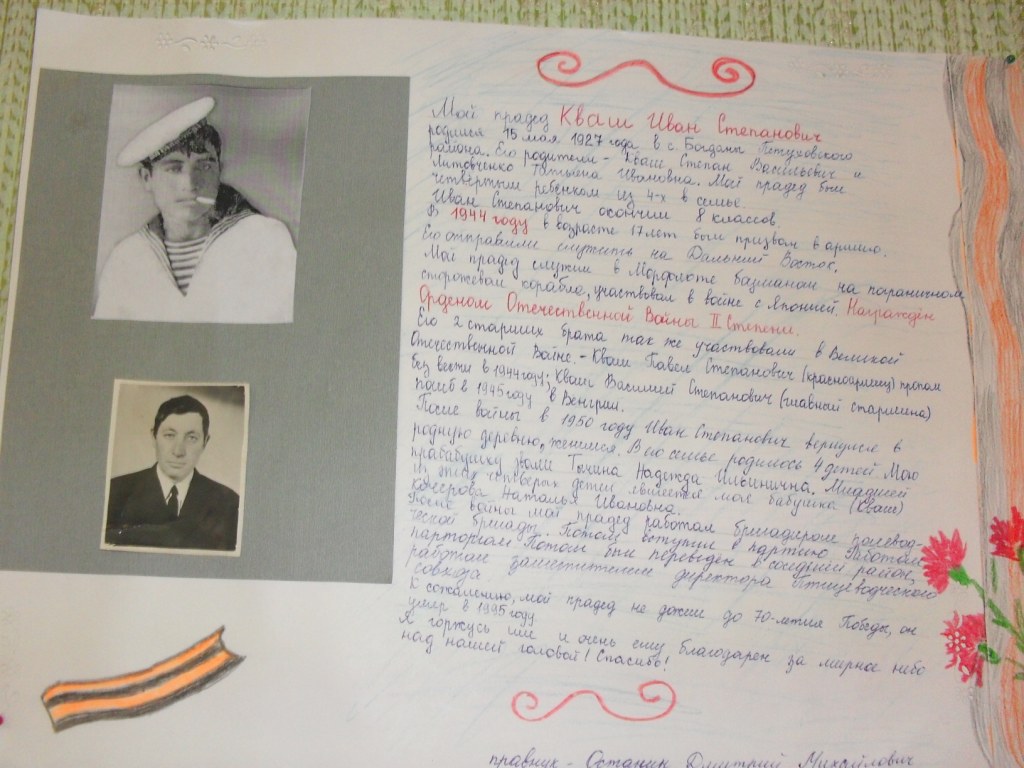 Мой прадед Кваш Иван Степанович
родился 15 мая 1927 года в с. Богданы Петуховского
района. Его родители - Кваш Степан Васильевич и
Литовченко Татьяна Ивановна. Мой прадед был
четвёртым ребёнком из 4-х в семье.
Иван Степанович окончил 8 классов.
В 1944 году в возрасте 17 лет был призван в армию.
Его отправили служить на Дальний Восток.
Мой прадед служил в Морфлоте боцманом на пограничном
сторожевом корабле, участвовал в войне с Японией. Награждён
Орденом Отечественной Войны II Степени.
Его 2 старших брата так же участвовали в Великой
Отечественной Войне. - Кваш Павел Степанович (красноармеец) пропал
без вести в 1944 году; Кваш Василий Степанович (главный старшина)
погиб в 1945 году в Венгрии.
После войны в 1950 году Иван Степанович вернулся в
родную деревню, женился. В его семье родилось 4 детей Мою
прабабушку звали Тычина Надежда Ильинична. Младшей
из этих четверых детей является моя бабушка (Кваш)
Наталья Ивановна.
После войны мой прадед работал бригадиром полевод-
ческой бригады. Потом вступил в партию Работал
парторгом Потом был переведен в соседний район,
работал заместителем директора Птицеводческого
совхоза
К сожалению, мой прадед не дожил до 70-летия Победы, он
умер в 1995 году
Я горжусь им и очень ему благодарен за мирное небо
над нашей головой! Спасибо!
правнук - Останин Дмитрий Михайлович